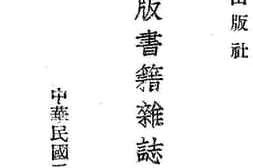 出版社
版書籍雜誌
中華民國